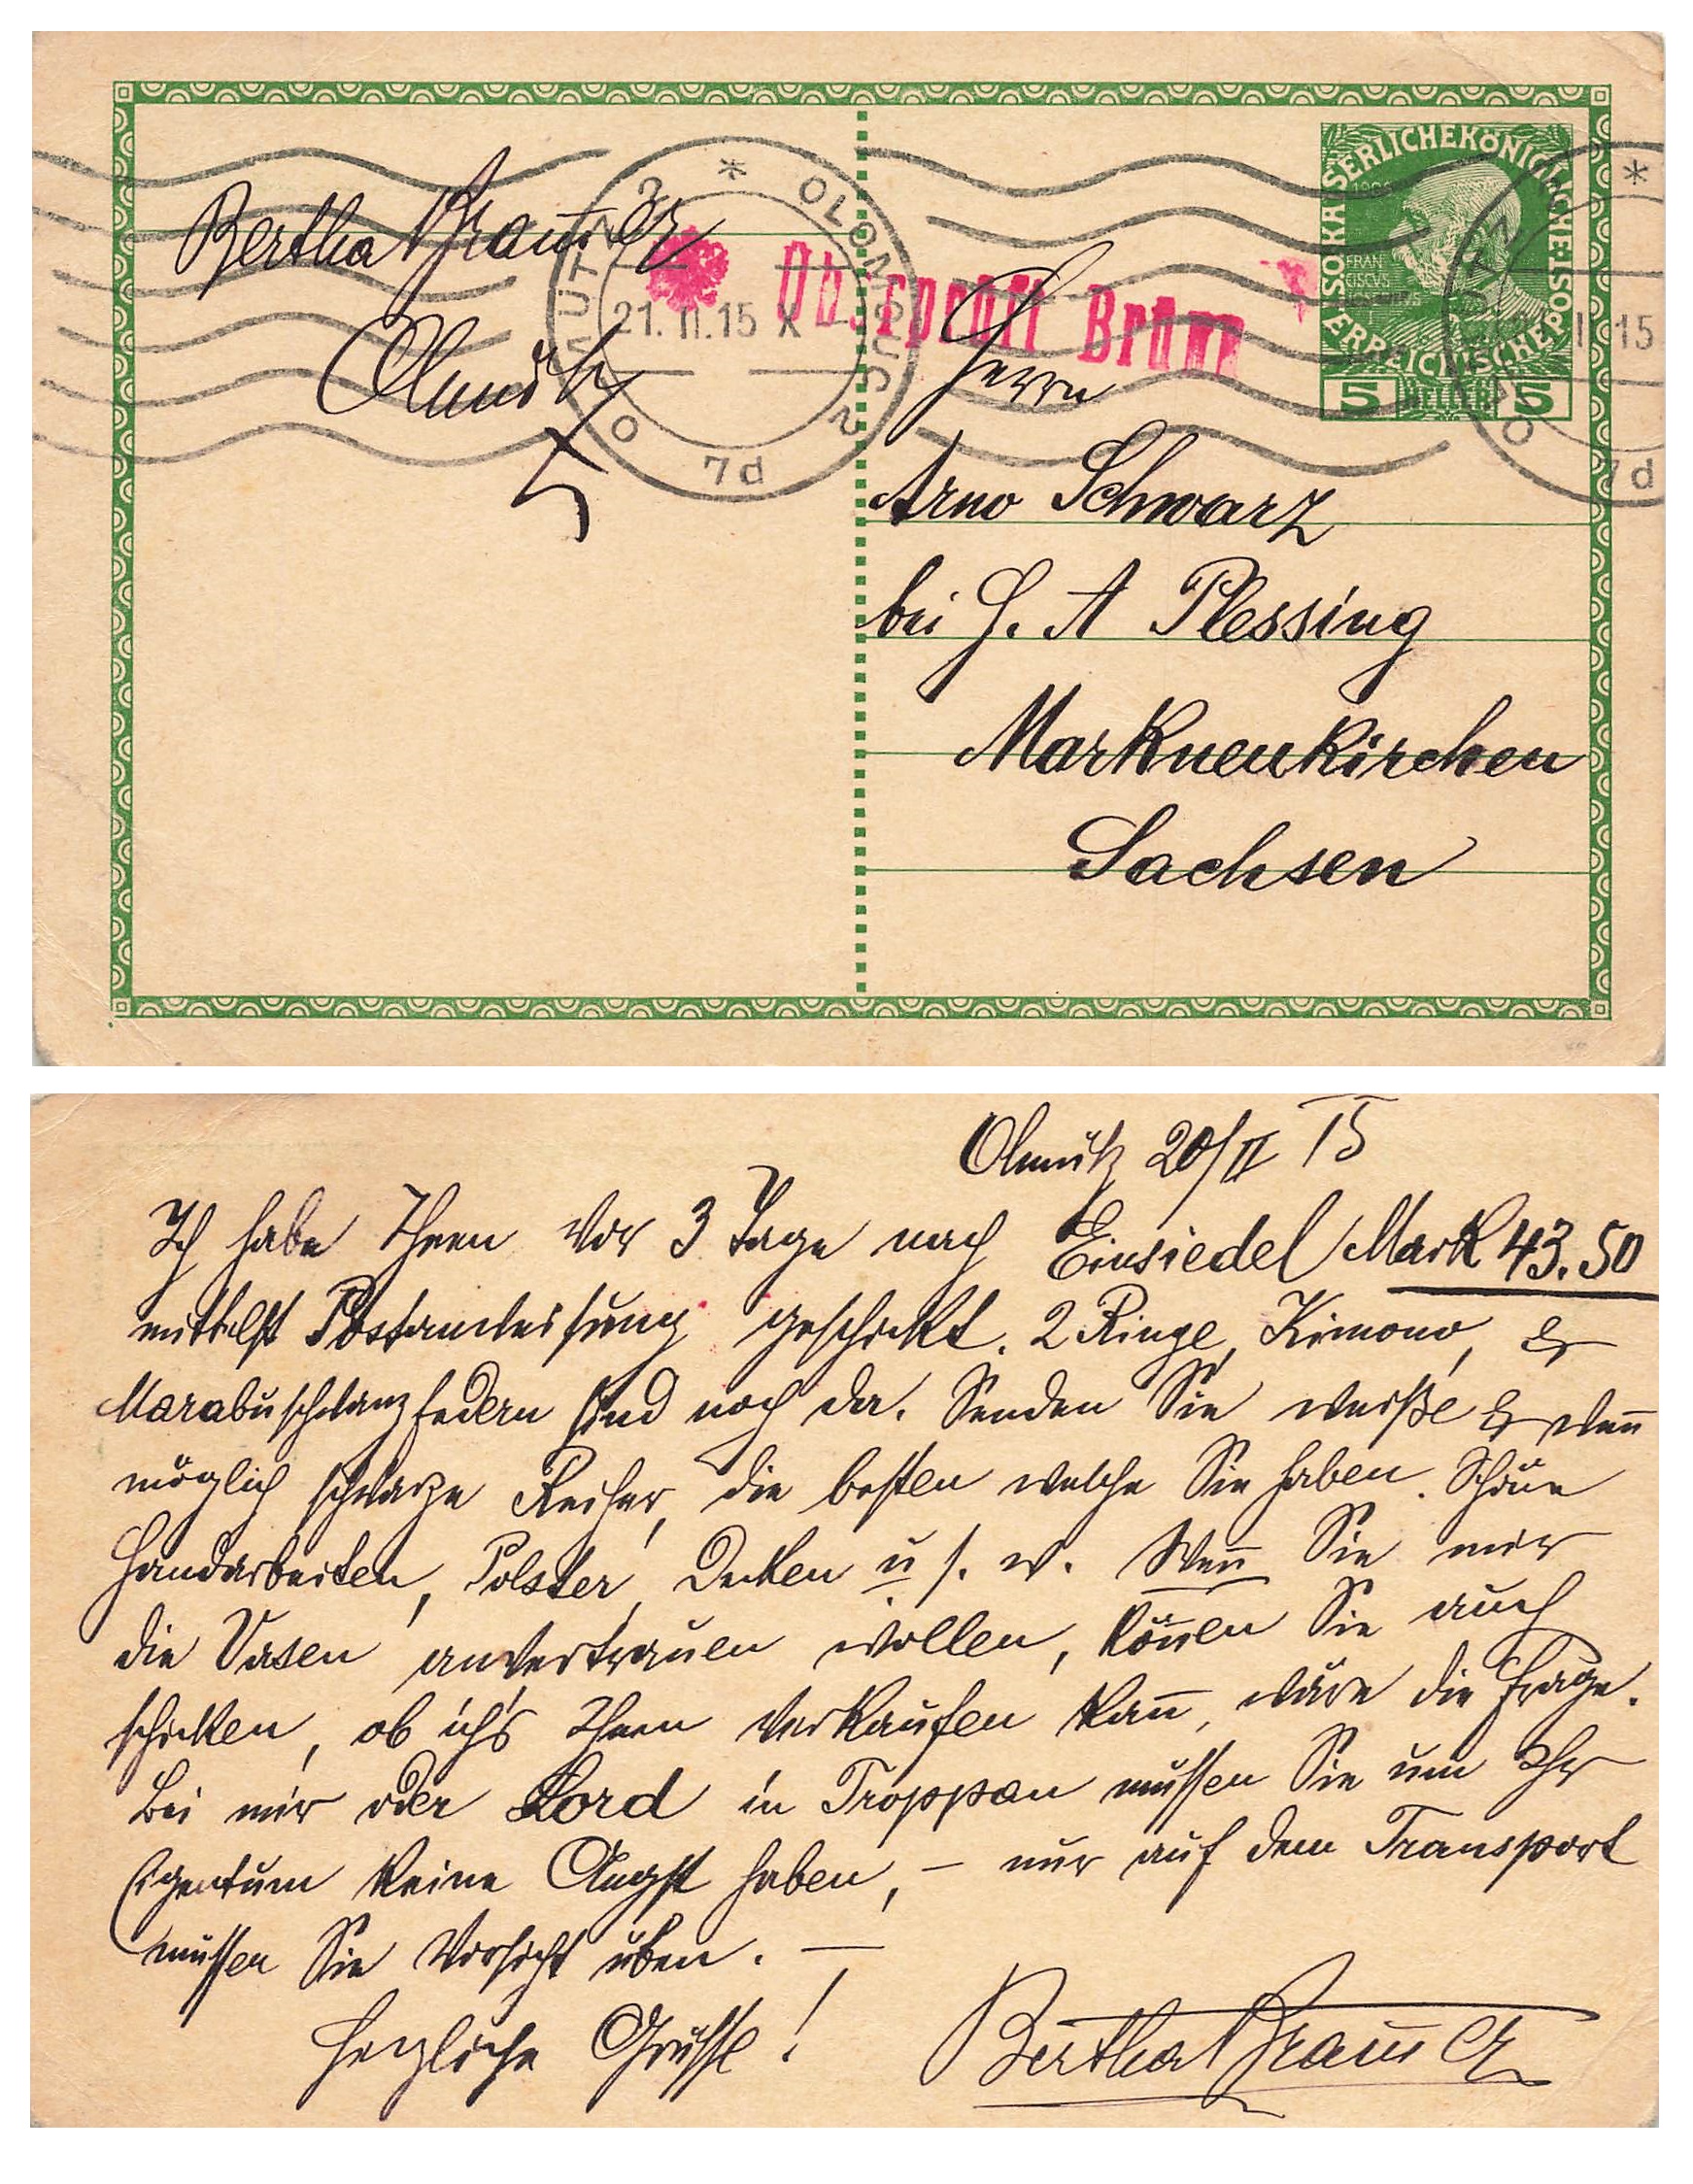 Bertha Brammer
Olmütz
OLMÜTZ 2 * OLOMOUC 2
21. II. 15 X
7d
Überprüft Brünn
KAISERLICHE KÖNIGLICHE
ÖSTERREICHISCHE POST
1908
FRAN
CISCVS
5 HELLER 5
II 15
7d
Herrn
Arno Schwarz
bei H. A Plessing
Markneukirchen
Sachsen
Olmütz 20/II 15
Ich habe Ihnen vor 3 Tage nach Einsiedel Mark 43.50
mittelst Postanweisung geschickt. 2 Ringe, Kimono, &
Marabuschwanzfedern sind noch da. Senden Sie weiße & wen̄
möglich schwarze Reiher, die besten welche Sie haben. Schöne
Handarbeiten, Polster, Decken u s. w. Wen̄ Sie mir
die Vasen anvertrauen wollen, kön̄en Sie auch
schicken, ob ich's Ihnen verkaufen kan̄, wäre die Frage.
Bei mir oder Lord in Troppau müssen Sie um Ihr
Eigentum keine Angst haben, – nur auf dem Transport
müssen Sie Vorsicht üben. —
Herzliche Grüsse!
Bertha Brammer